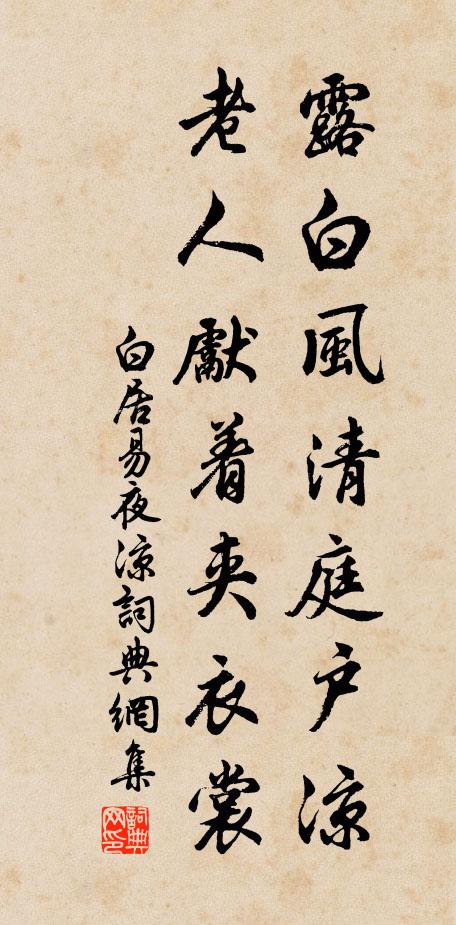 露白風清庭户涼
老人獻着夾衣裳
白居易夜涼詞典網集
詞典网印